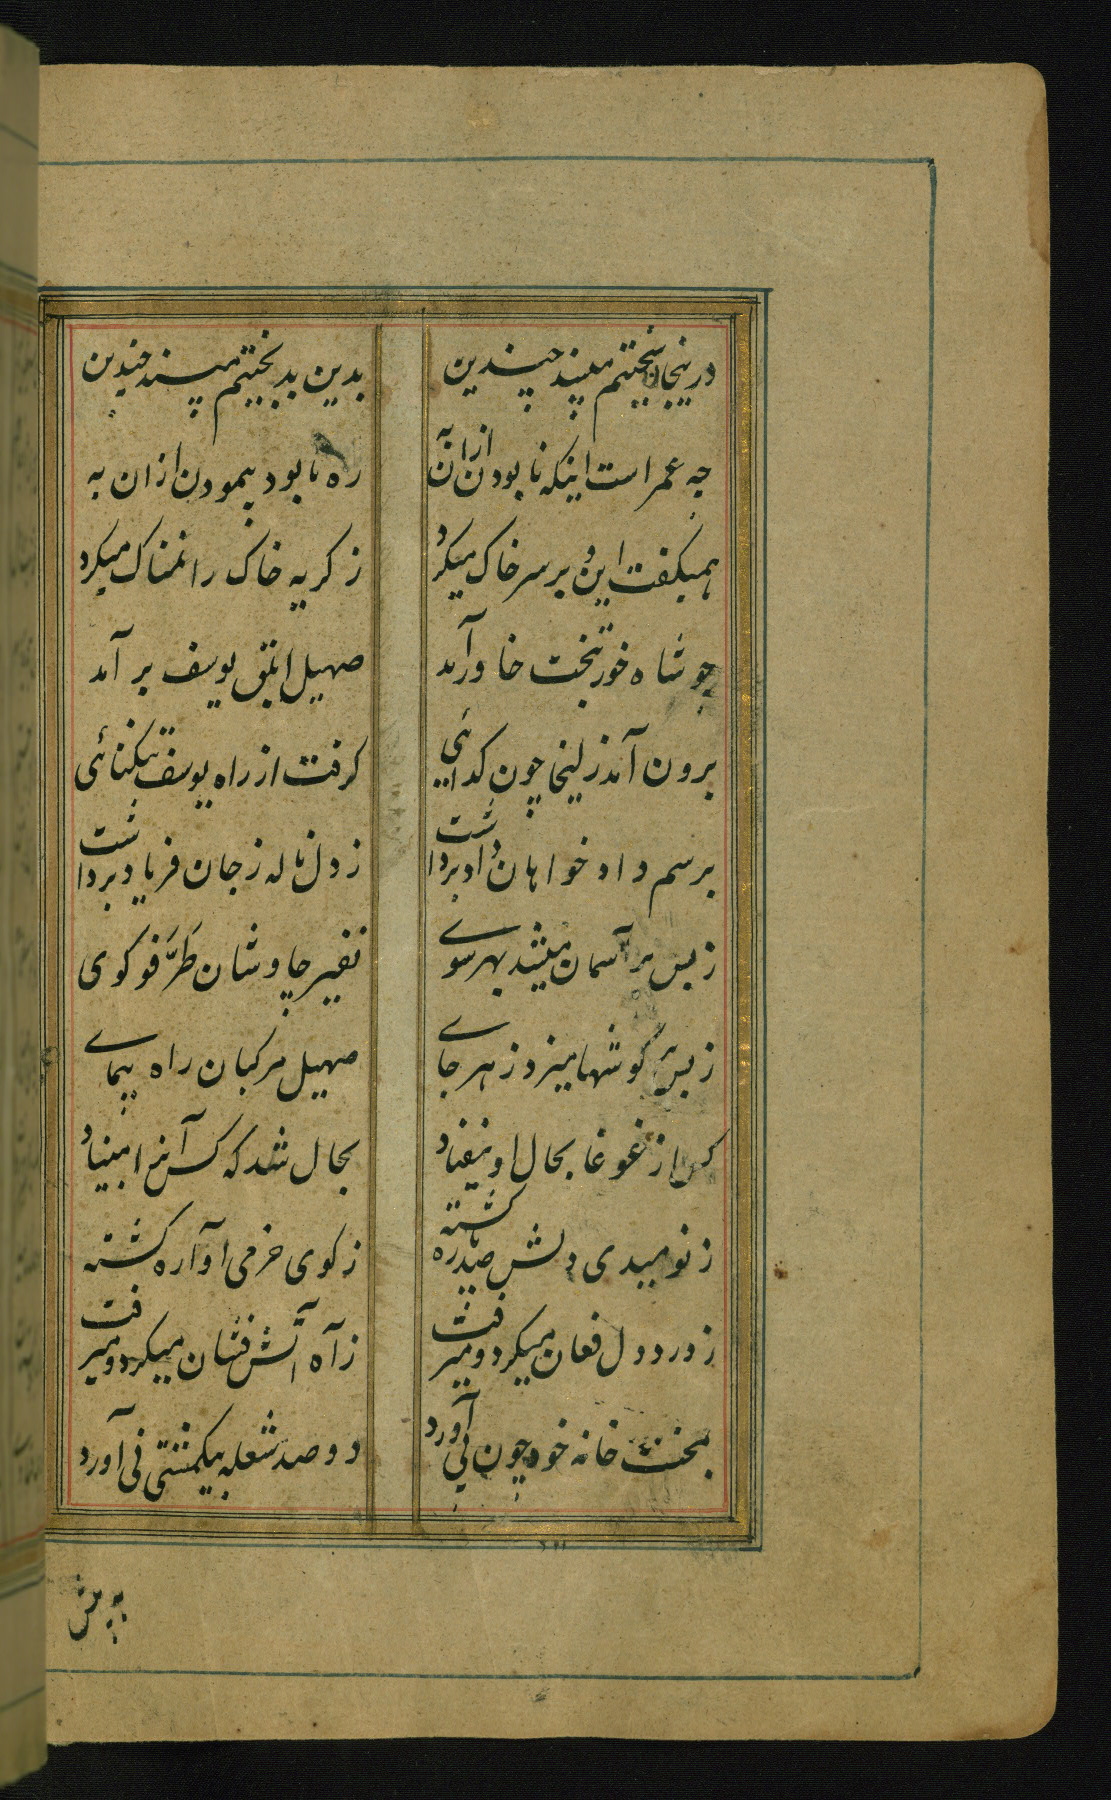 درین جان سختیم مپسند چندین
بدین بدبختیم مپسند چندین
چه عمر است اینکه نابودن ازان به
ره نابود پیمودن ازان به
همیکفت این و بر سر خاک میکرد
ز کریه خاک را نمناک میکرد
چو شاه خور بتخت خاور آمد
صهیل ابلق یوسف برآمد
برون آمد زلیخا چون کدائی
کرفت از راه یوسف تنکنائی
برسم داد خواهان داد برداشت
ز دل ناله ز جان فریاد برداشت
ز بس بر آسمان میشد بهر سوی
نفیر چاوشان طرقو کوی
ز بس بر گوشها میزد ز هر جای
صهیل مرکبان راه پیمای
کس از غوغا بحال او نیفتاد
بحالی شد که کس آنرا مبیناد
ز نومیدی دلش صد پاره کشته
ز کوی خرمی آواره کشته
ز درد دل فغان میکرد و میرفت
ز آه آتش فشان میکرد و میرفت
بمحنت خانه خود چون پی آورد
دو صد شعله بیکمشتی نی آورد
به پیش